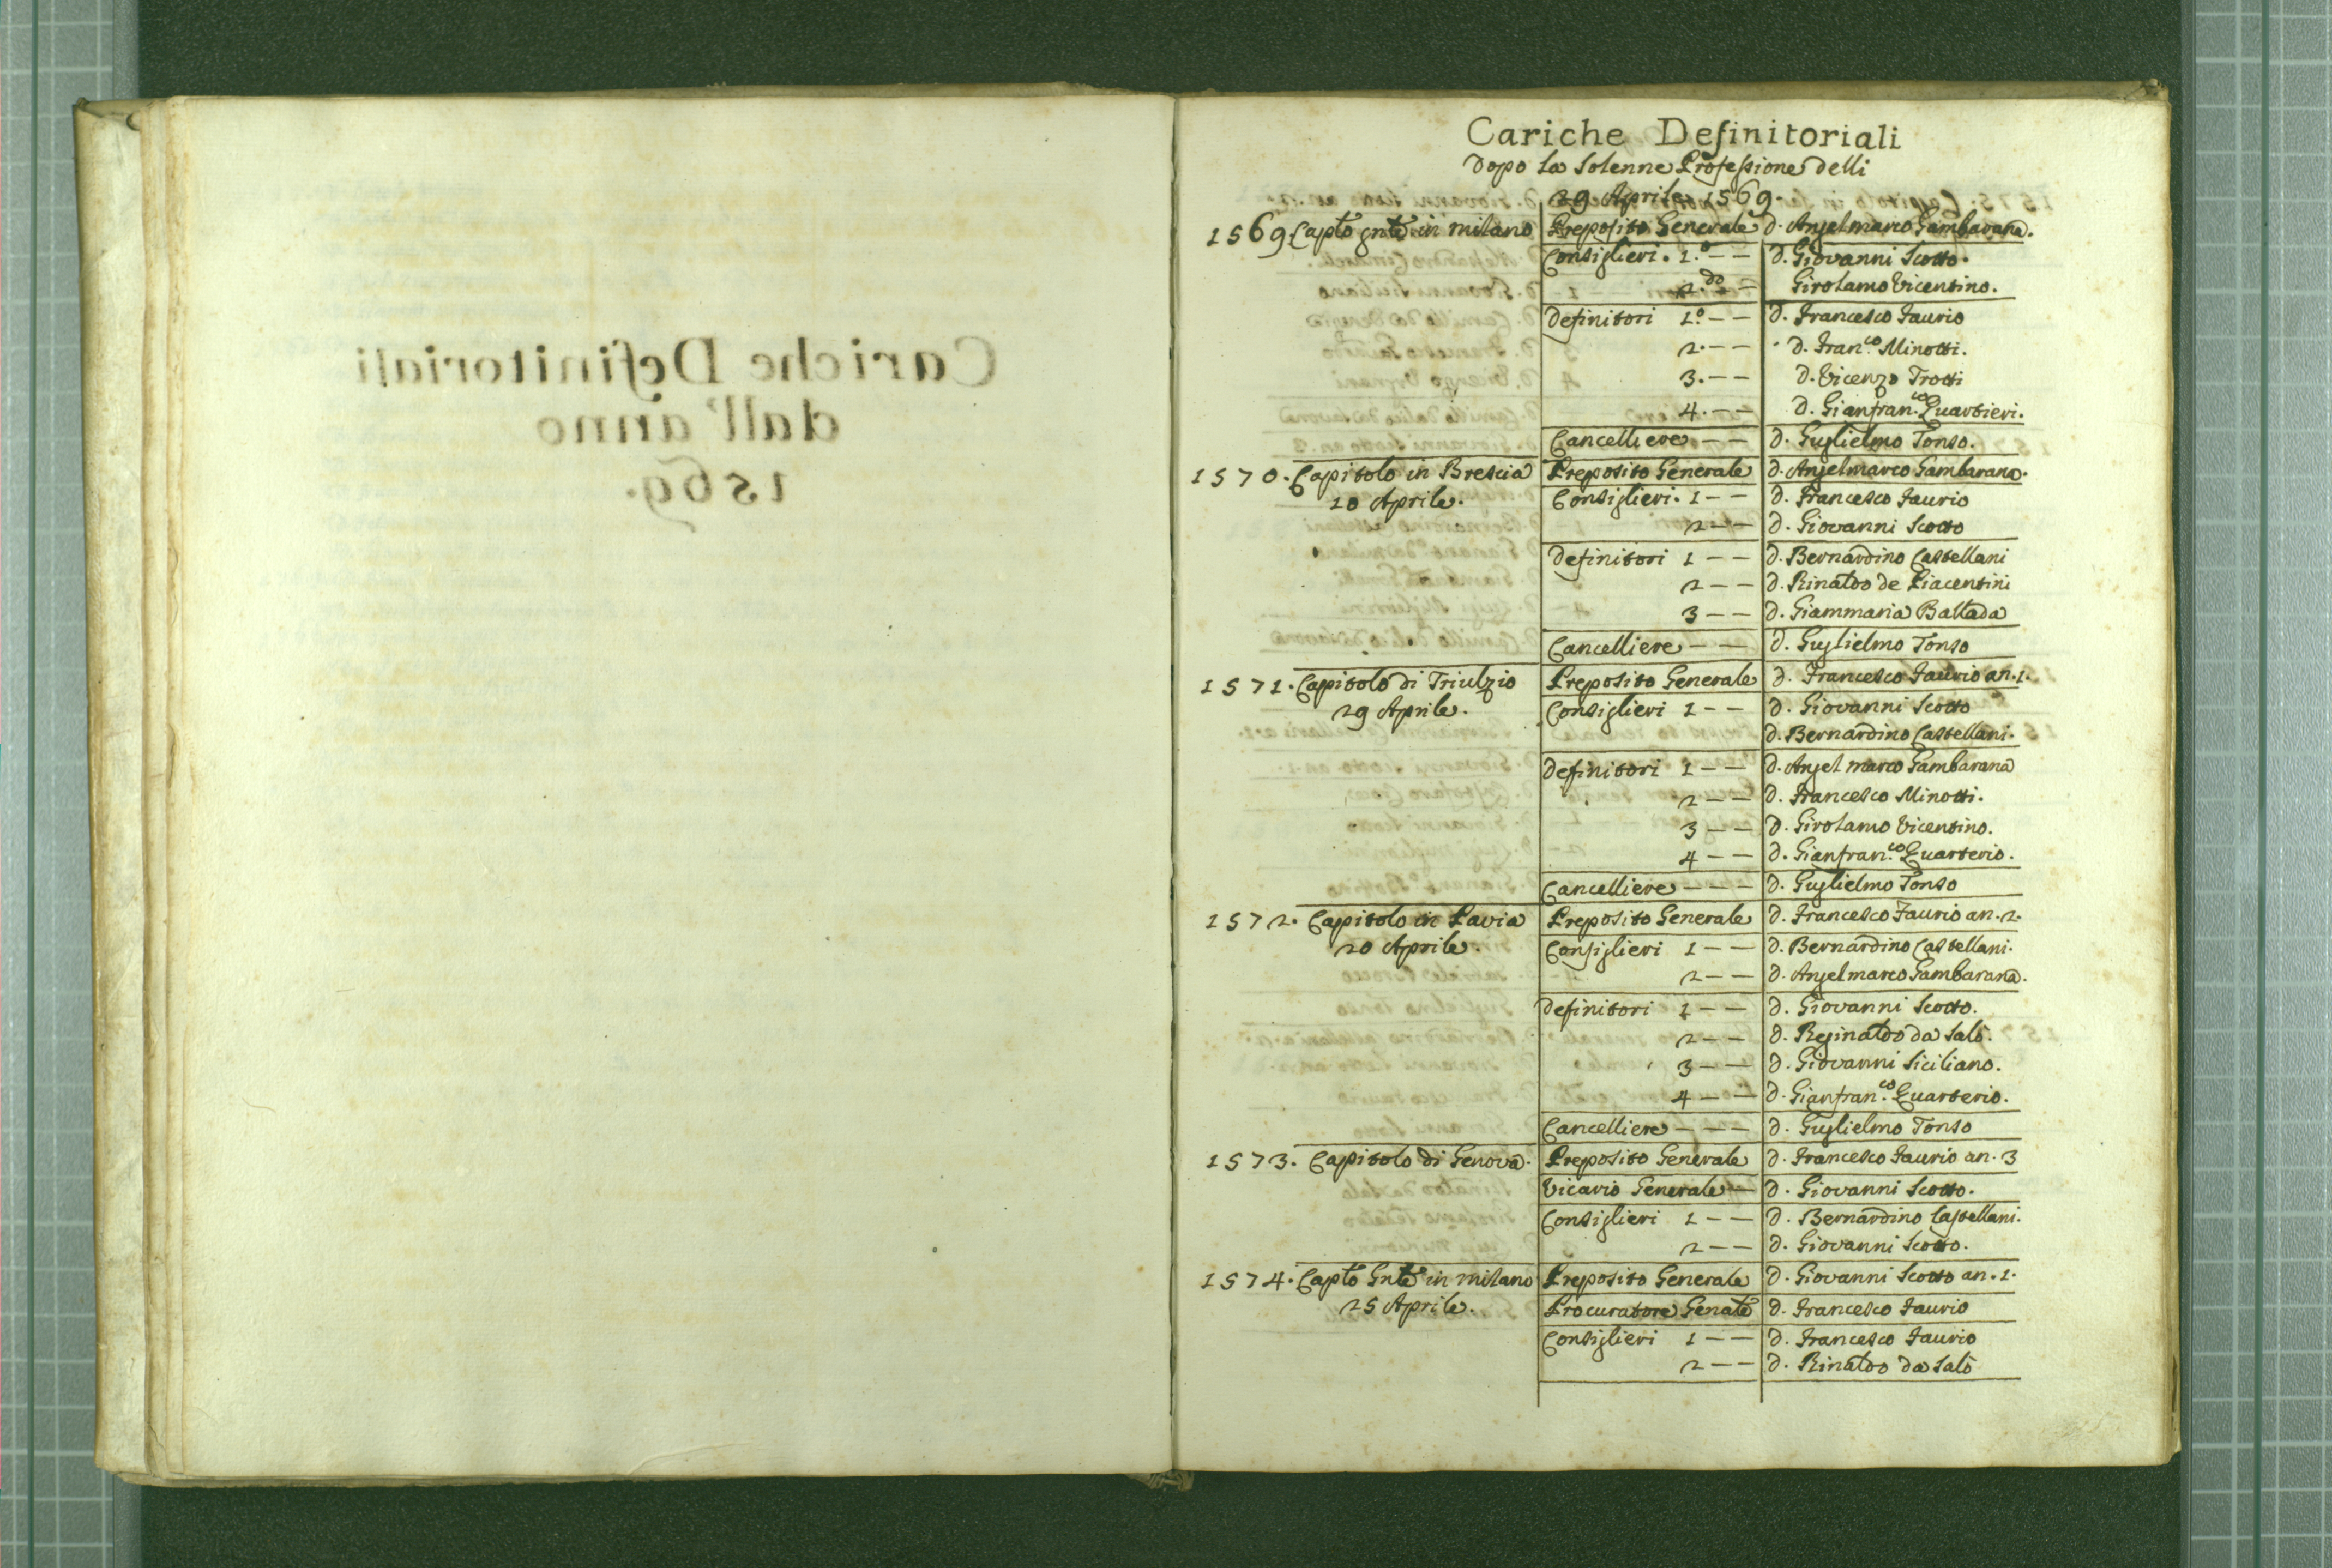 Cariche Definitoriali
dall'anno
1569.
Cariche Definitoriali
Dopo la Solenne Professione delli
29 Aprile 1569.
1569. Capto gnle in milano Preposito Generale d. Angelmarco Gambarana.
Consiglieri. 1.o -- d. Giovanni Scotto.
2.do - Girolamo Vicentino.
Definitori 1.o -- d. Francesco Faurio
2. -- d. Fran.co Minotti.
3. -- d. Vicenzo Trotti
4. -- d. Gianfran.co Quartieri.
Cancelliere -- d. Guglielmo Tonso.
1570. Capitolo in Brescia Preposito Generale d. Angelmarco Gambarana.
10 Aprile. Consiglieri. 1 -- d. Francesco Faurio
2 -- d. Giovanni Scotto
Definitori 1 -- d. Bernardino Castellani
2 -- d. Rinaldo de Piacentini
3 -- d. Giammaria Ballada
Cancelliere -- d. Guglielmo Tonso
1571. Capitolo di Triulzio Preposito Generale d. Francesco Faurio an. 1.
29 Aprile. Consiglieri 1 -- d. Giovanni Scotto
d. Bernardino Castellani.
Definitori 1 -- d. Angel marco Gambarana
2 -- d. Francesco Minotti.
3 -- d. Girolamo Vicentino.
4 -- d. Gianfran.co Quarterio.
Cancelliere --- d. Guglielmo Tonso
1572. Capitolo in Pavia Preposito Generale d. Francesco Faurio an. 2.
20 Aprile. Consiglieri 1 -- d. Bernardino Castellani.
2 -- d. Angelmarco Gambarana.
Definitori 1 -- d. Giovanni Scotto.
2 -- d. Reginaldo da Salò.
3 -- d. Giovanni Siciliano.
4 -- d. Gianfran.co Quarterio.
Cancelliere --- d. Guglielmo Tonso
1573. Capitolo di Genova. Preposito Generale d. Francesco Faurio an. 3
Vicario Generale - d. Giovanni Scotto.
Consiglieri 1 -- d. Bernardino Castellani.
2 -- d. Giovanni Scotto.
1574. Capto Gnle in milano Preposito Generale d. Giovanni Scotto an. 1.
25 Aprile. Procuratore Genale d. Francesco Faurio
Consiglieri 1 -- d. Francesco Faurio
2 -- d. Rinaldo da Salò